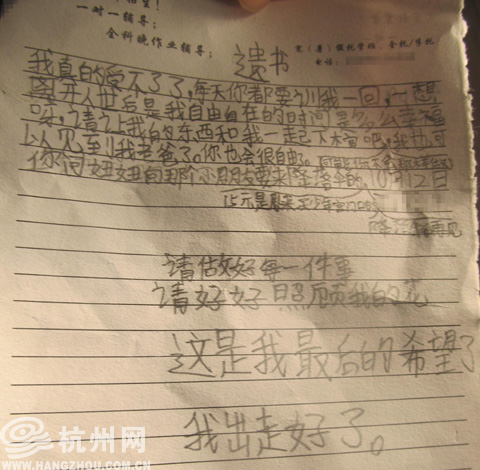 招生!
一对一辅导;
全科晚作业辅导;
电话:
遗书
我真的受不了了,每天你都要训我一回,一想
离开人世后是我自由自在的时间是多么幸福
呀,请让我的东西和我一起下葬吧,我也可
以见到我老爸了。你也会很自由了。
你问妞妞白那个小朋友要来降落伞的10月12日
再见
请做好每一件事
请好好照顾我的花
这是我最后的希望了
我出走好了。
杭州网
WWW.HANGZHOU.COM.CN